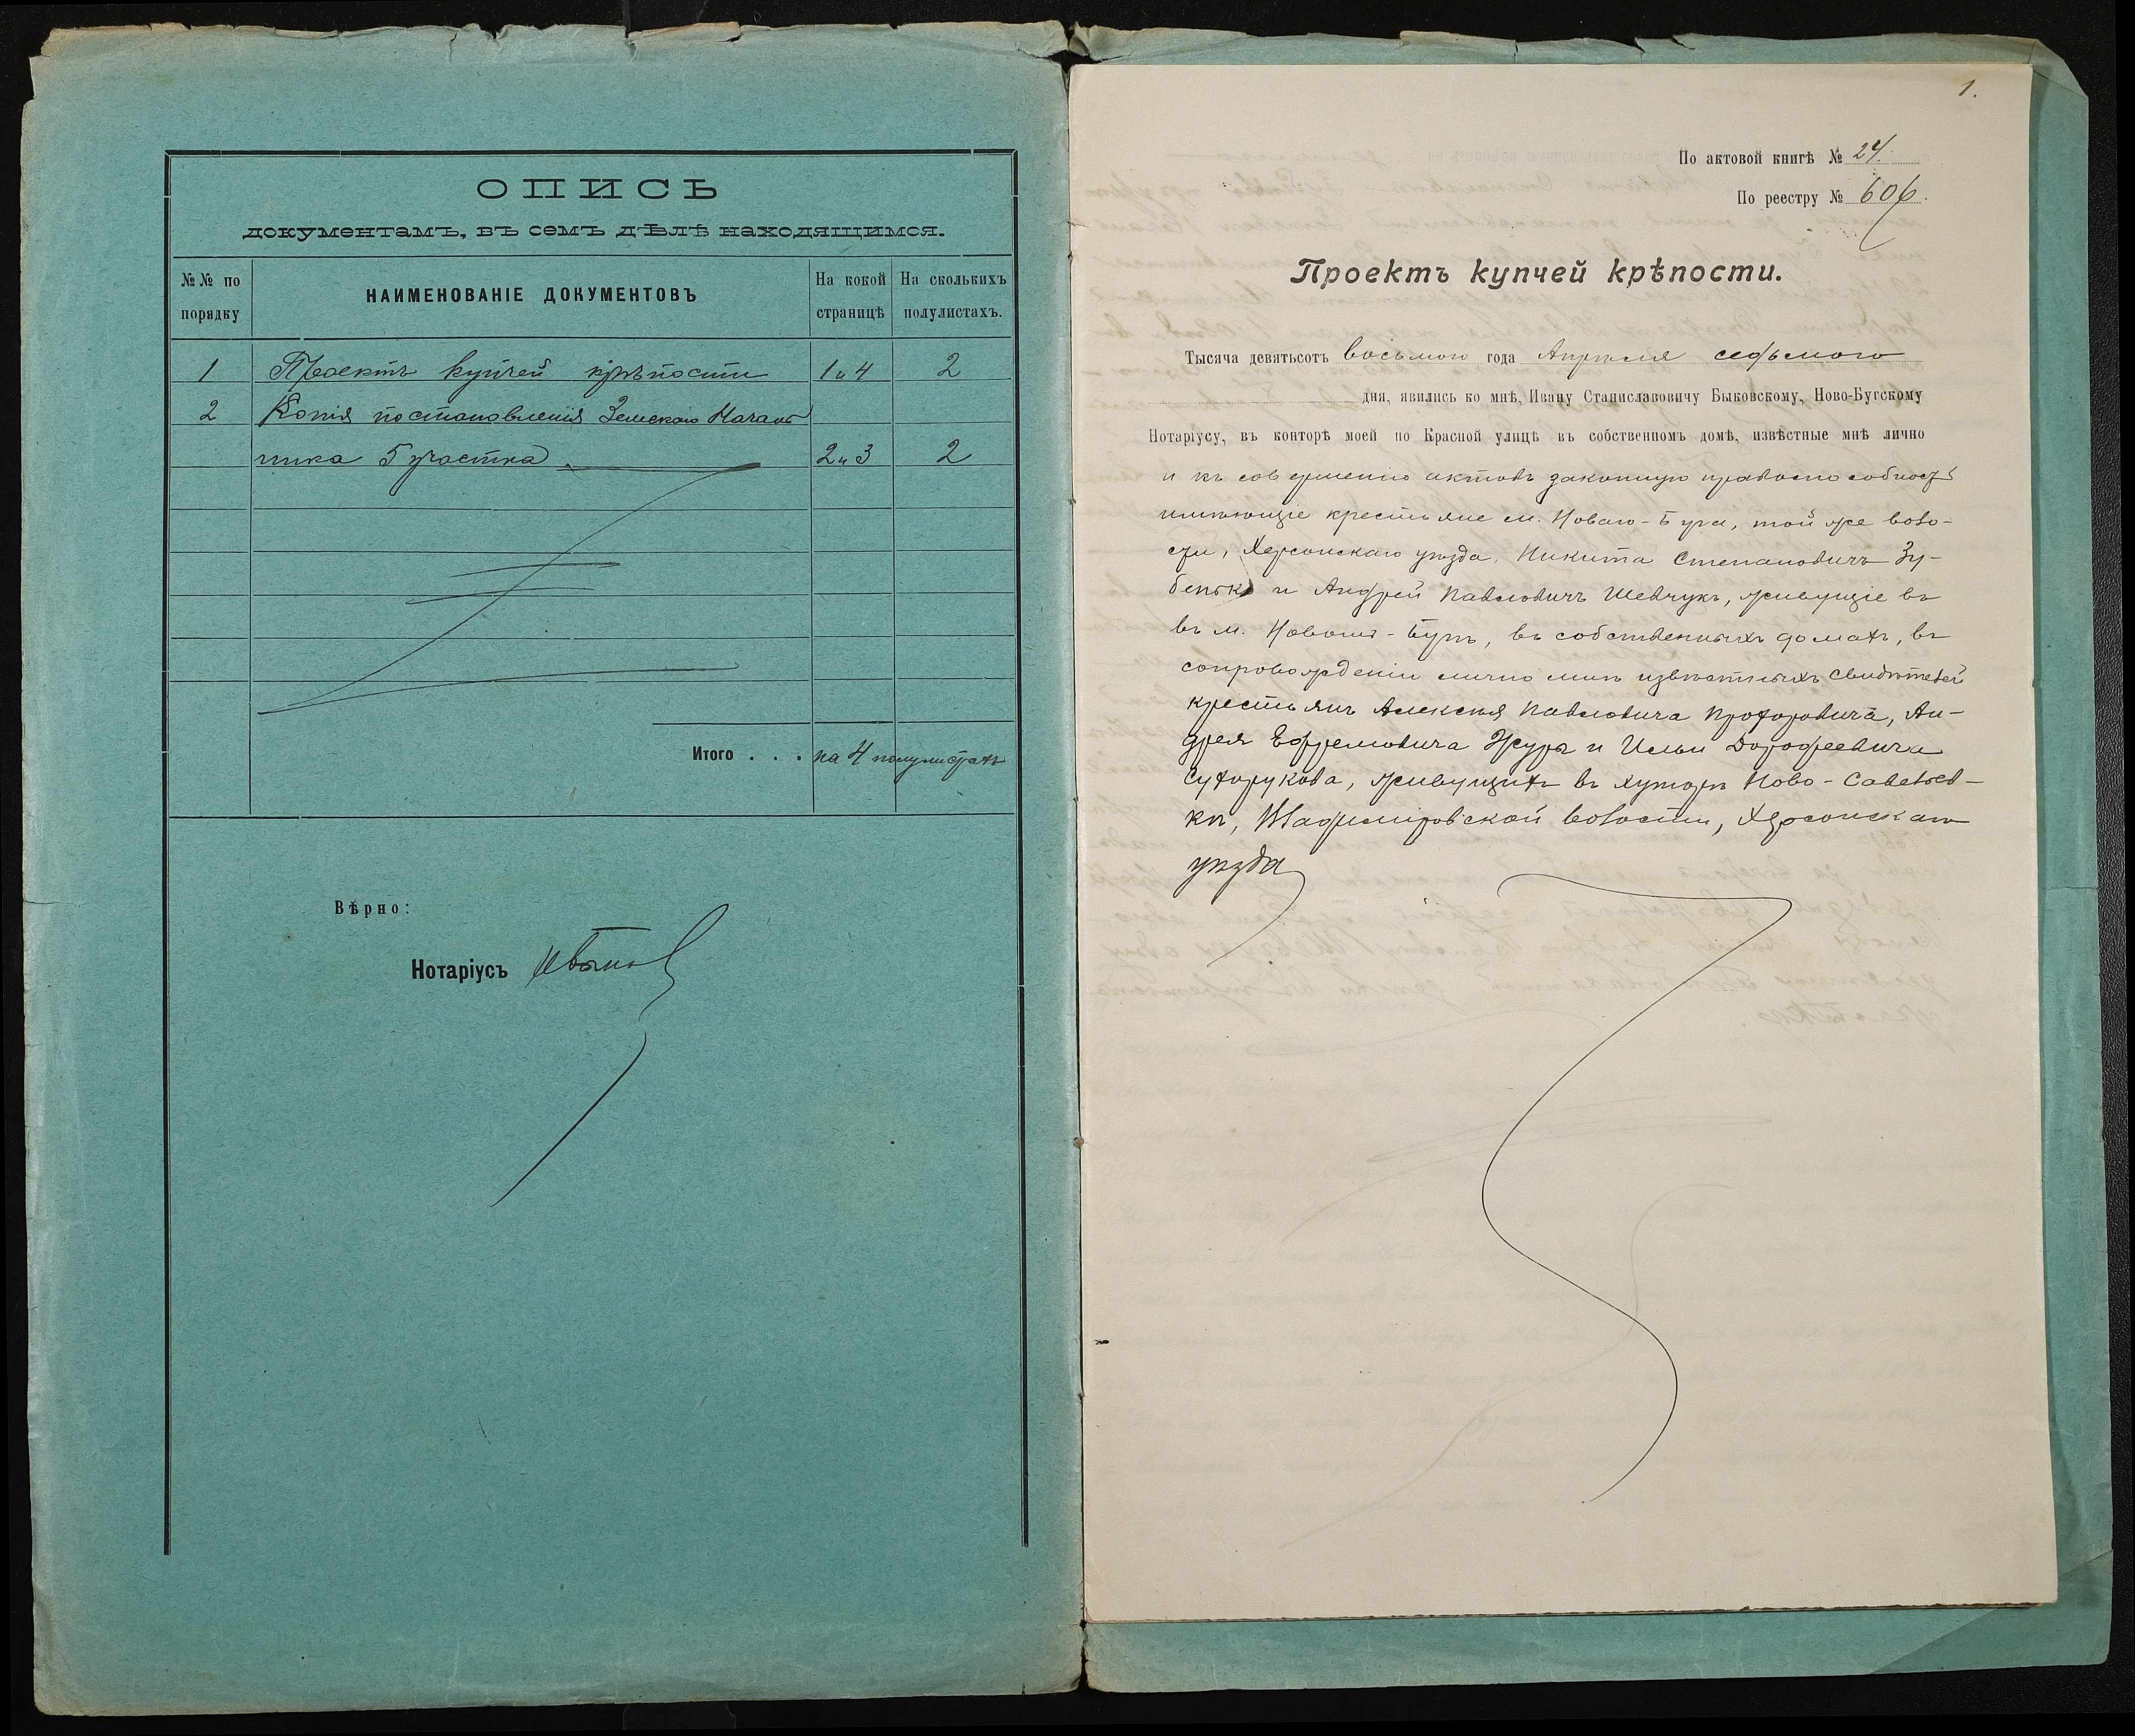 ОПИСЬ
документамъ, въ семъ дѣлѣ находящимся.
№№ по порядку
НАИМЕНОВАНІЕ ДОКУМЕНТОВЪ
На какой страницѣ
На сколькихъ полулистахъ.
1 Проектъ купчей крѣпости 1 и 4 2
2 Копія постановленія Земскаго Началь
ника 5 участка 2 и 3 2
Итого . . . на 4 полулистахъ
Вѣрно:
Нотаріусъ
1.
По актовой книгѣ № 24.
По реестру № 606.
Проектъ купчей крѣпости.
Тысяча девятьсотъ восьмого года Апрѣля седьмого
дня, явились ко мнѣ, Ивану Станиславовичу Быковскому, Ново-Бугскому
Нотаріусу, въ конторѣ моей по Красной улицѣ въ собственномъ домѣ, извѣстные мнѣ лично
и къ совершенію актовъ законную правоспособность
имѣющіе крестьяне м. Новаго-Буга, той же воло-
сти, Херсонскаго уѣзда, Никита Степановичъ Зу-
бенько и Андрей Павловичъ Шевчукъ, живущіе въ
въ м. Новомъ-Бугѣ, въ собственныхъ домахъ, въ
сопровожденіи лично мнѣ извѣстныхъ свидѣтелей
крестьянъ Алексѣя Павловича Прохоровича, Ан-
дрея Ефремовича Жура и Ильи Дорофеевича
Сухорукова, живущихъ въ хуторѣ Ново-Савельев-
кѣ, Владимировской волости, Херсонскаго
уѣзда